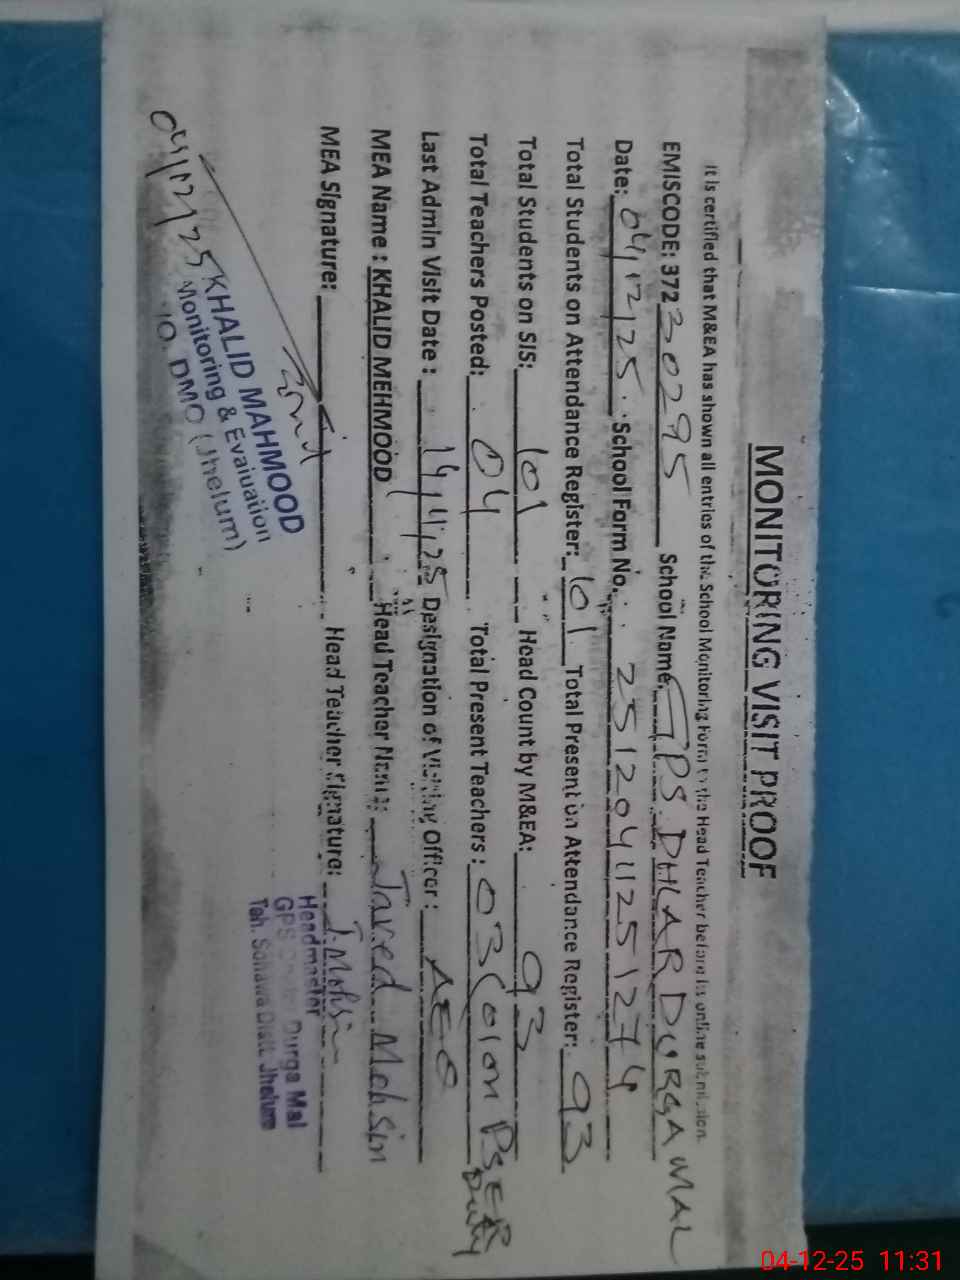 MONITORING VISIT PROOF
It is certified that M&EA has shown all entries of the School Monitoring Form to the Head Teacher before its online submission.
EMISCODE: 372 30295 School Name: GPS DHAR DURGA MAL
Date: 04/12/25 School Form No. 2512041125127 4
Total Students on Attendance Register: 101 Total Present on Attendance Register: 93
Total Students on SIS: 101 Head Count by M&EA: 93
Total Teachers Posted: 04 Total Present Teachers: 03 (01 on PSER Duty
Last Admin Visit Date: Designation of Visiting Officer: AEO
MEA Name : KHALID MEHMOOD Head Teacher Name: Javed Mohsin
MEA Signature: Head Teacher Signature: J. Mohsin
04/12/25
KHALID MAHMOOD
Monitoring & Evaluation
DMO (Jhelum)
Headmaster
GPS Durga Mal
Teh. Sohawa Distt. Jhelum
04-12-25 11:31